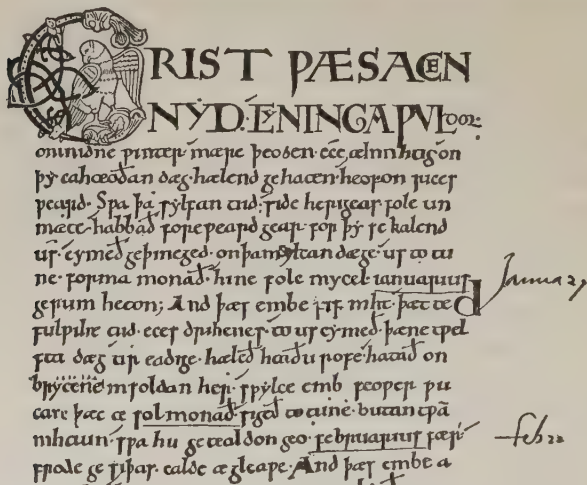 CRIST ǷÆS ACEN
NẎD. CẎNINGA ǷUL dor:
onmidne ƿinter mære þeoden· ece ælmihtig· on
þẏ eahteoðan dæg· hælend gehaten heofon rices
ƿeard. Sƿa þa sẏlfan tiid· side herigeas folc un
mæte· habbað foreƿeard gear· for þẏ se kalend
us· cẏmeð geþincged· onþam ẏlcan dæge· us to tu
ne· forma monað· hine folc mẏcel ianuarius
gerum heton; And þæs embe fif niht· þætte
fulƿiht tiid· eces drihtnes· to us cẏmeð· þæne tƿel
fta dæg tir eadige· hæleð heaðu rofe· hatað on
brẏtene in foldan her· sƿẏlce emb feoƿer ƿu
can þæt te sol monað· sigeð to tune· butan tƿam
nihtum· sƿa hit getealdon geo· februarius fær
frode ge siþas· ealde ægleaƿe· And þæs embe a
January
feb